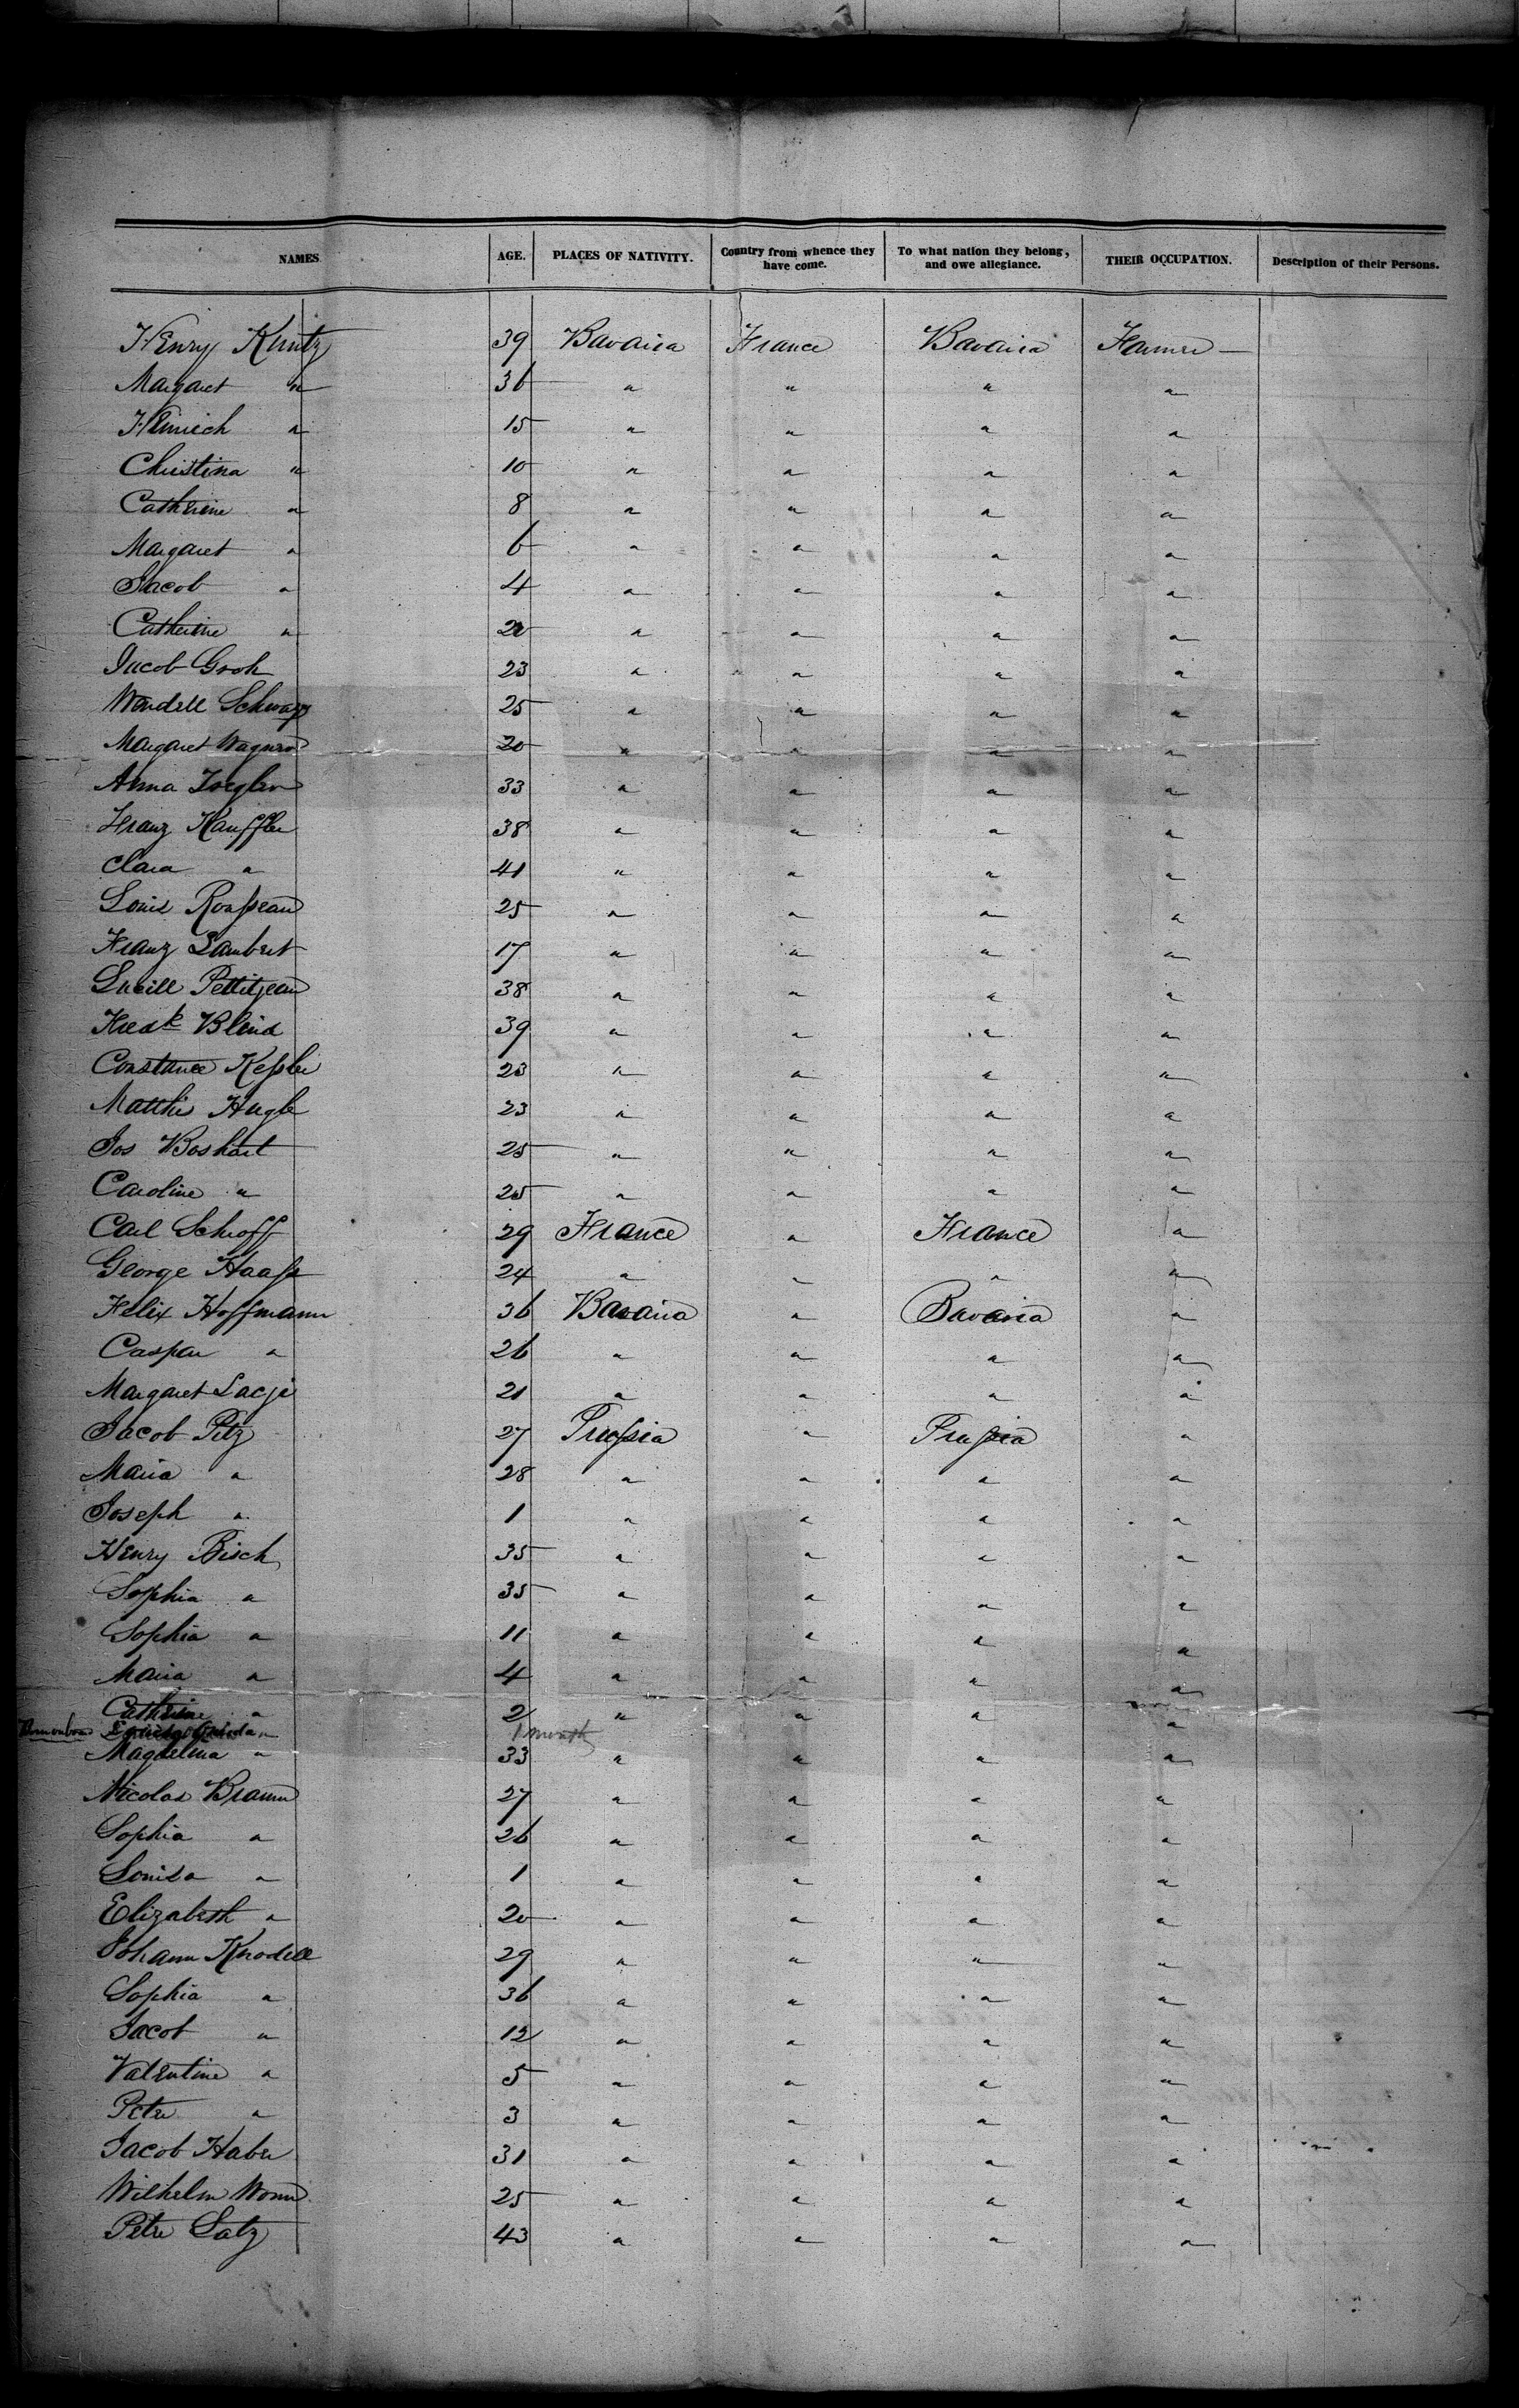 NAMES. AGE. PLACES OF NATIVITY. Country from whence they have come. To what nation they belong, and owe allegiance. THEIR OCCUPATION. Description of their Persons.
Henry Kuntz 39 Bavaria France Bavaria Farmer —
Margaret " 36 " " " "
Heinrich " 15 " " " "
Christina " 10 " " " "
Catherine " 8 " " " "
Margaret " 6 " " " "
Jacob " 4 " " " "
Catherine " " " " "
Jacob Groh 23 " " " "
Wendell Schwarz 25 " " " "
Margaret Wagner 20 " " " "
Anna 33 " " " "
Franz Kauffler 38 " " " "
Clara " 41 " " " "
Louis Rousseau 25 " " " "
Franz Lambert 17 " " " "
Lucill Pettitjean 38 " " " "
Fredk Blind 39 " " " "
Constance Kessler 23 " " " "
Matthis Hugle 23 " " " "
Jos Boshart 25 " " " "
Caroline " 25 " " " "
Carl Schroff 29 France " France "
George Haass 24 " " " "
Felix Hoffmann 36 Bavaria " Bavaria "
Caspar " 26 " " " "
Margaret 21 " " " "
Jacob Pitz 27 Prussia " Prussia "
Maria " 28 " " " "
Joseph " 1 " " " "
Henry Bisch 35 " " " "
Sophia " 35 " " " "
Sophia " 11 " " " "
Maria " 4 " " " "
Catherine " 2 " " " "
" 1 month
Magdelena " 33 " " " "
Nicolas Braun 27 " " " "
Sophia " 26 " " " "
Louisa " 1 " " " "
Elizabeth " 20 " " " "
Johann Knodell 29 " " " "
Sophia " 36 " " " "
Jacob " 12 " " " "
Valentine " 5 " " " "
Peter " 3 " " " "
Jacob Haber 31 " " " "
Wilhelm 25 " " " "
Peter Latz 43 " " " "